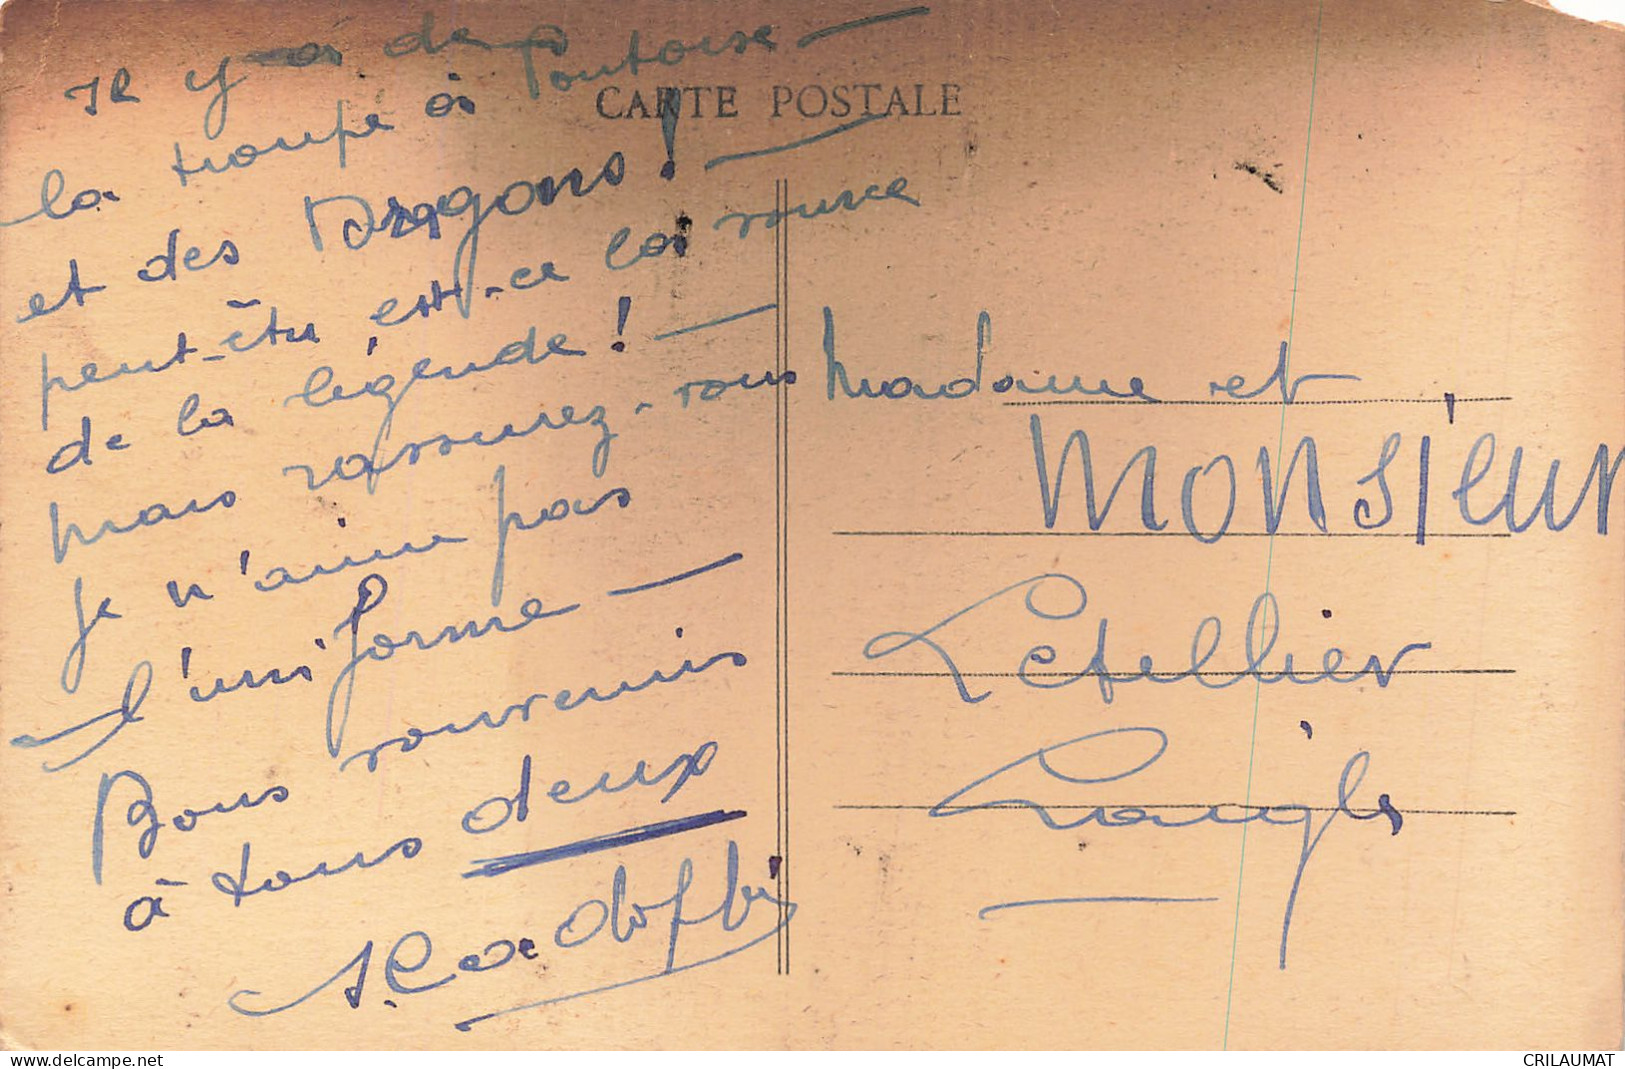 CARTE POSTALE
Il y a de
la troupe à Pontoise —
et des Dragons ! —
peut-être est-ce la source
de la légende ! —
mais rassurez-vous
je n'aime pas
l'uniforme —
Bons souvenirs
à tous deux
Madame et
Monsieur
Letellier
Laigle
delcampe.net
CRILAUMAT